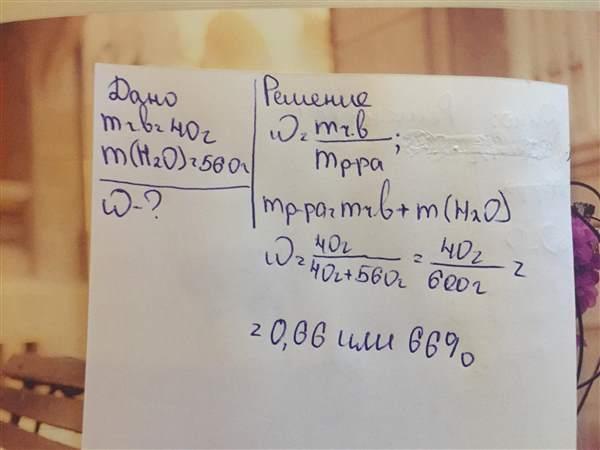 Дано
mчв=40г
m(H₂O)=560г
ω-?
Решение
ω=mчв/mр-ра;
mр-ра=mчв+m(H₂O)
ω=40г/40г+560г=40г/600г=
=0,66 или 66%